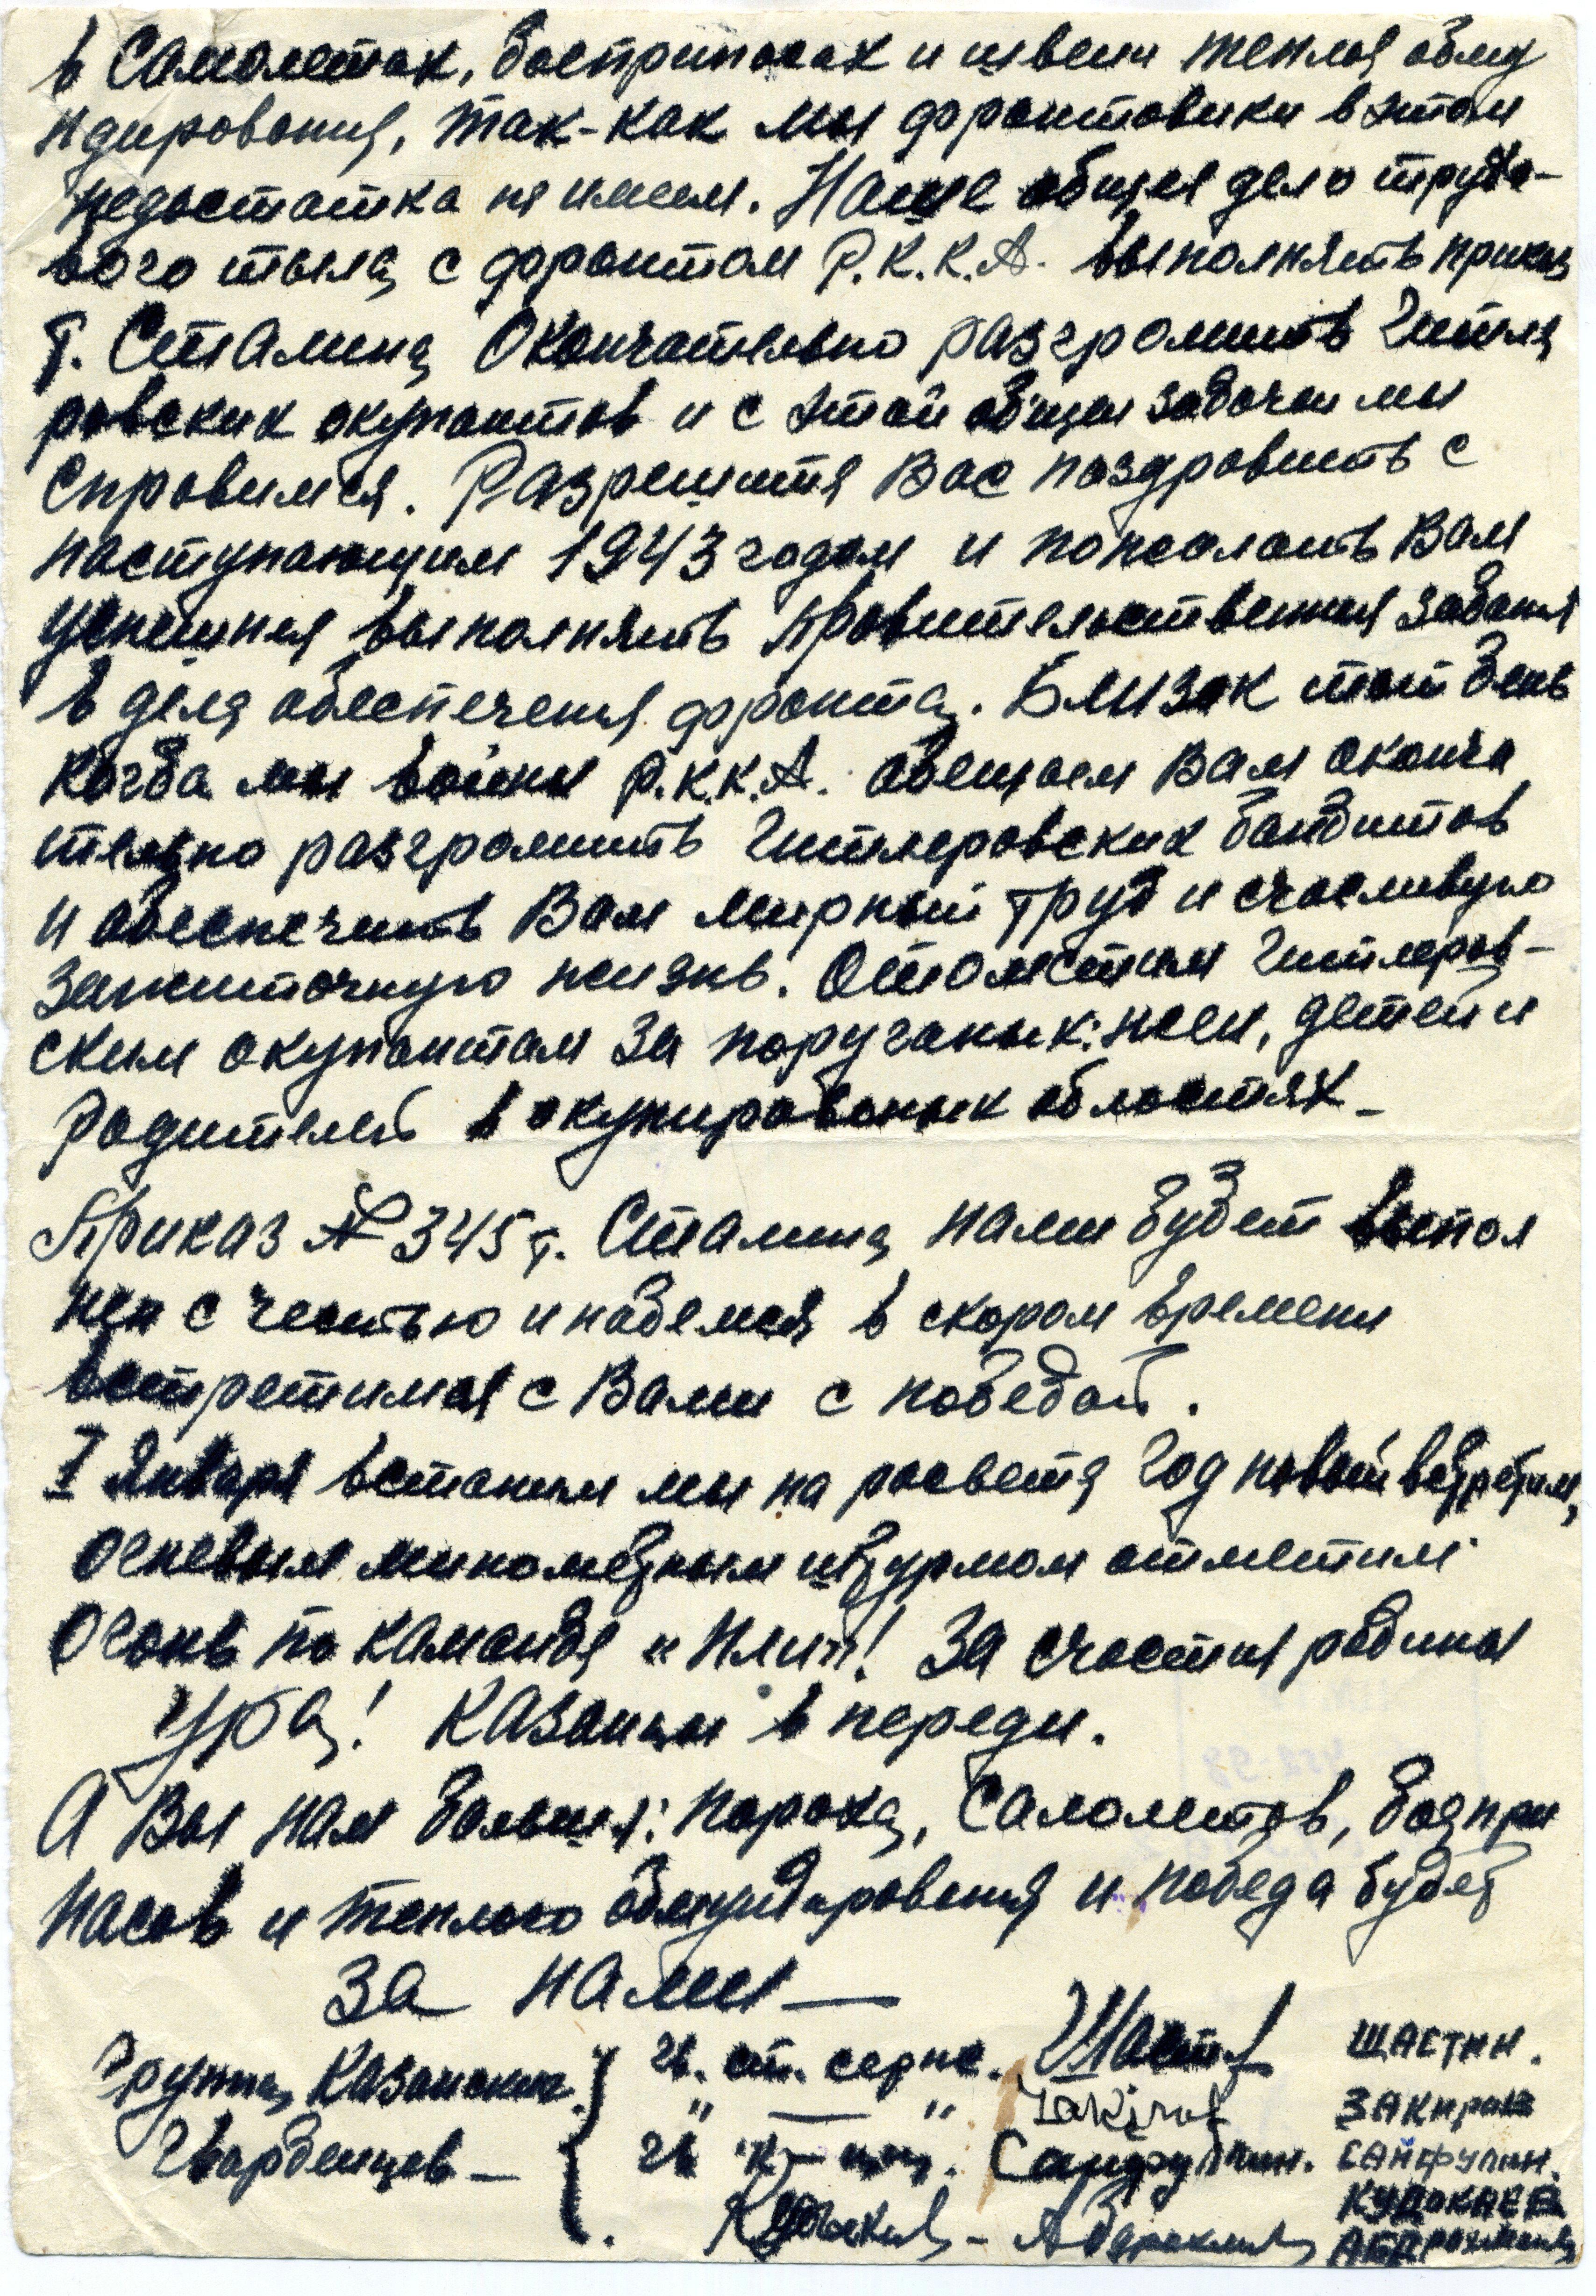 в самолетах, боеприпасах и швеии теплоя обму
ндирования, так-как мы фронтовики в этом
недостатка не имеем. Наше общея дело трудо-
вого тыла с фронтом Р.К.К.А. выполнять приказ
т. Сталина Окончательно разгромить Гитле
ровских окупантов и с этой общеи задачеи мы
справимся. Разрешитя Вас поздровить с
наступающим 1943 годом и пожелать Вам
успешня выполнять правительственыя заданя
в деля обеспеченя фронта. Близок тот день
когда мы воины Р.К.К.А. обещаем Вам оконча
тельно разгромить Гитлеровских бандитов
и обеспечить Вам мирный труд и счасливую
зажиточную жизнь. Отомстим Гитлеров-
ским окупантам за поруганых: жен, детей и
родителей в окупированых областях-
Приказ № 345 т. Сталина нами будет выпол
нен с честью и надемся в скором времени
встретимся с Вами с победой.
I Января встаним мы на росветя год новый встретим,
огневым минометным штурмом отметим
огонь по командя "Пли"! За счастия родины
Ура! Казанцы в переди.
А Вы нам больше: пороха, Самолетов, боепри
пасов и теплого обмундированя и победа будет
за нами —
Группа Казанских } гв. ст. серж. Шастин ШАСТИН.
" — " Zakirof ЗАКИРОВ
Гвардейцев — { гв. к-ц. Сайфулин. САЙФУЛИН.
КУДАКАЕВ